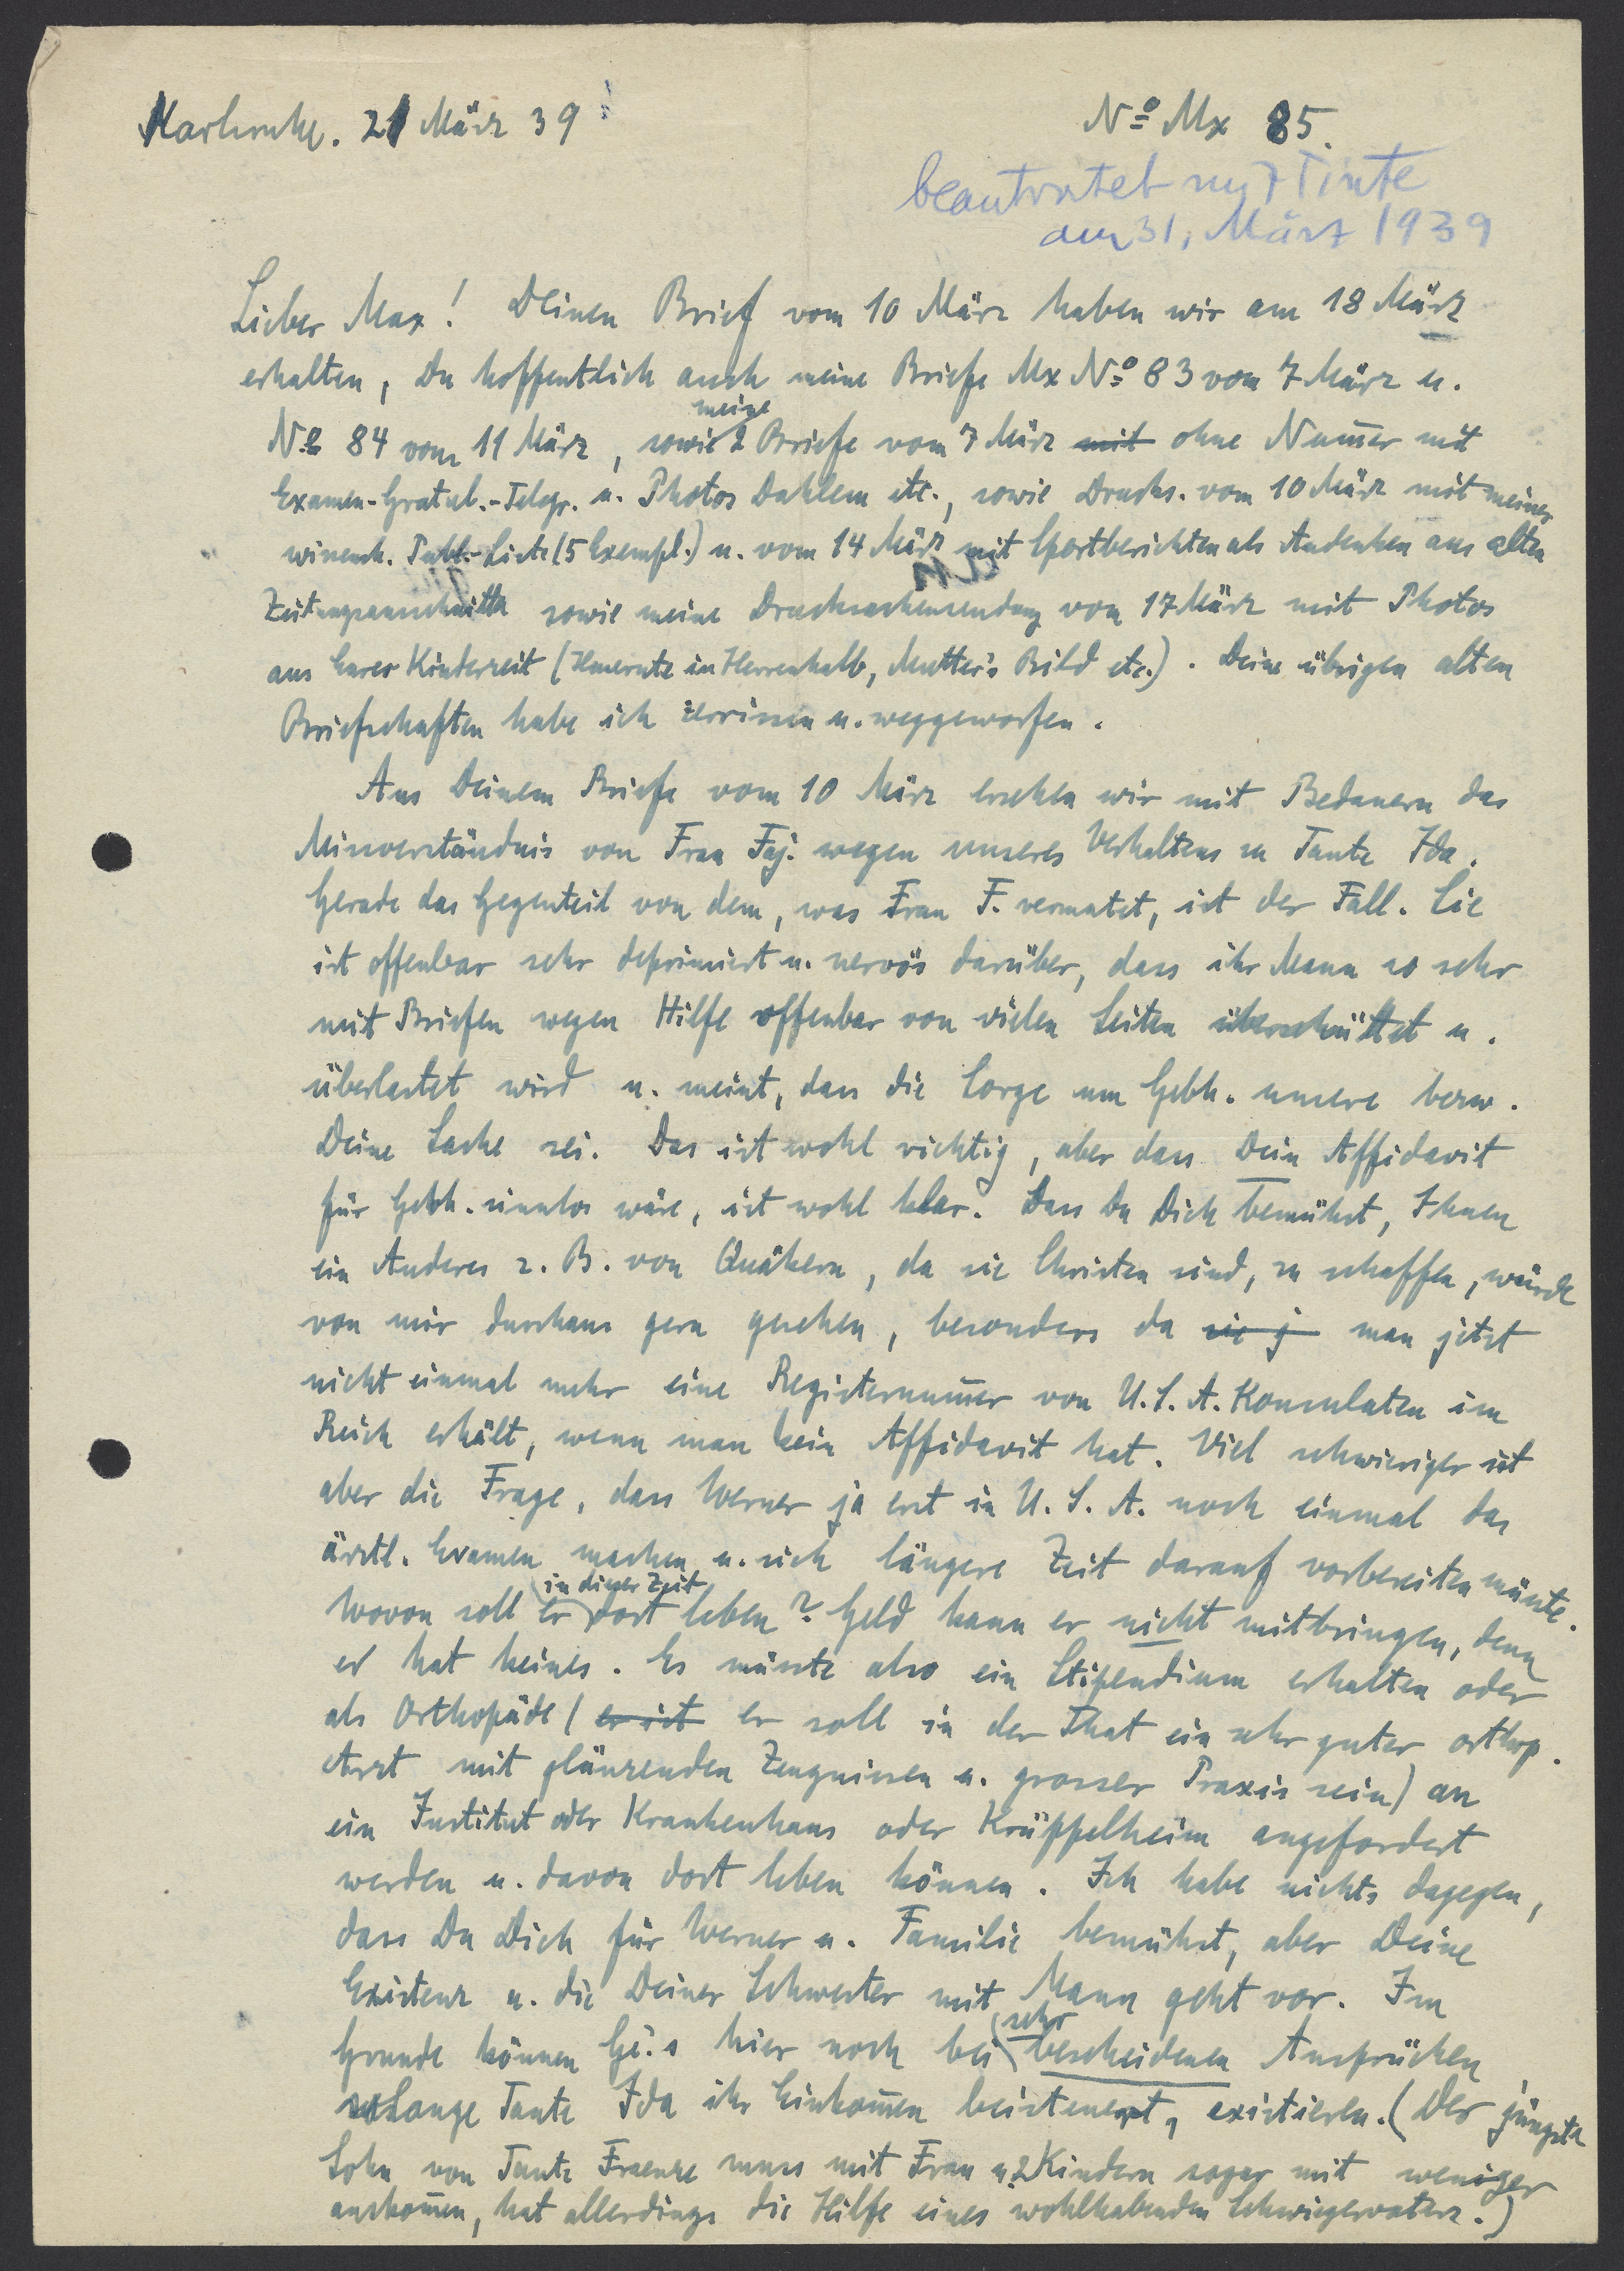 Karlsruhe. 21 März 39
No Mx 85.
beantwortet mit Tinte
am 31. März 1939
Lieber Max! Deinen Brief vom 10 März haben wir am 18 März
erhalten, Du hoffentlich auch meine Briefe Mx No 83 vom 7 März u.
No 84 vom 11 März, sowie meine 2 Briefe vom 7 März mit ohne Num̄er mit
Examen-Gratul.-Telegr. u. Photos Dahlem etc., sowie Drucks. vom 10 März mit meiner
wissensch. Publ.-Liste (5 Exempl.) u. vom 14 März mit Sportberichten als Andenken aus alten
Zeitungsausschnitten sowie meine Drucksachensendung vom 17 März mit Photos
aus Eurer Kinderzeit (in Herrenhalb, Mutter's Bild etc.). Deine übrigen alten
Briefschaften habe ich zerrissen u. weggeworfen.
Aus Deinem Briefe vom 10 März ersehen wir mit Bedauern das
Missverständnis von Frau Faj. wegen unseres Verhaltens zu Tante Ida.
Gerade das Gegenteil von dem, was Frau F. vermutet, ist der Fall. Sie
ist offenbar sehr deprimiert u. nervös darüber, dass ihr Mann so sehr
mit Briefen wegen Hilfe offenbar von vielen Seiten überschüttet u.
überlastet wird u. meint, dass die Sorge um Gebh. unsere bezw.
Deine Sache sei. Das ist wohl richtig, aber dass Dein Affidavit
für Gebh. sinnlos wäre, ist wohl klar. Dass Du Dich bemühst, Ihnen
ein Anderes z. B. von Quäkern, da sie Christen sind, zu schaffen, würde
von mir durchaus gern gesehen, besonders da sie j man jetzt
nicht einmal mehr eine Registernum̄er von U.S.A. Konsulaten im
Reich erhält, wenn man kein Affidavit hat. Viel schwieriger ist
aber die Frage, dass Werner ja erst in U.S.A. noch einmal das
ärztl. Examen machen u. sich längere Zeit darauf vorbereiten müsste.
Wovon soll er in dieser Zeit dort leben? Geld kann er nicht mitbringen, denn
er hat keines. Es müsste also ein Stipendium erhalten oder
als Orthopäde (er ist er soll in der That ein sehr guter orthop.
Arzt mit glänzenden Zeugnissen u. grosser Praxis sein) an
ein Institut oder Krankenhaus oder Krüppelheim angefordert
werden u. davon dort leben können. Ich habe nichts dagegen,
dass Du Dich für Werner u. Familie bemühst, aber Deine
Existenz u. die Deiner Schwester mit Mann geht vor. Im
Grunde können Ge.s hier noch bei sehr bescheidenen Ansprüchen
solange Tante Ida ihr Einkom̄en beisteuert, existieren. (Der jüngste
Sohn von Tante Fraenze muss mit Frau u. 2 Kindern sogar mit weniger
auskom̄en, hat allerdings die Hilfe eines wohlhabenden Schwiegervaters.)